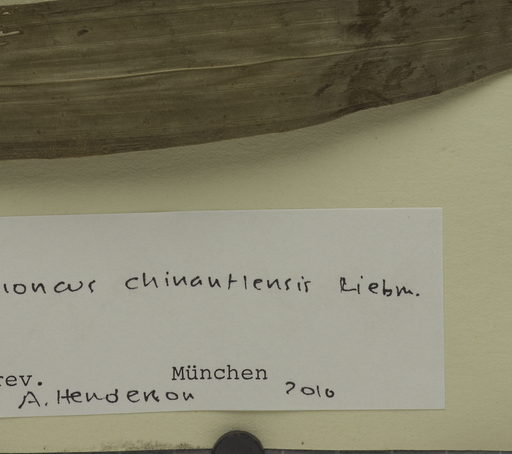 ioncus chinantlensis Liebm.
rev. München
A. Henderson 2010